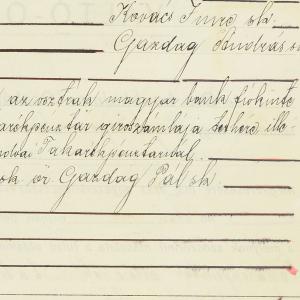 Kovács Imre sk.
Gazdag András s
az osztrák magyar bank fiókinté
takarékpénztár giroszámlája terhére ille
Takarékpénztárnál.
sk. Gazdag Pál sk.